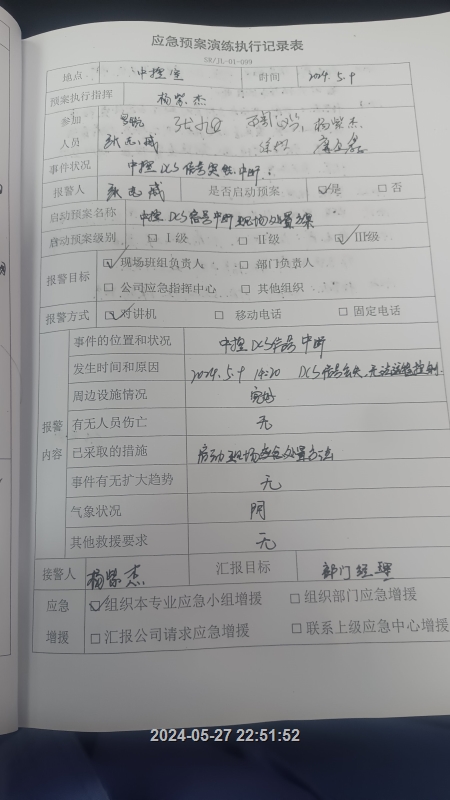 应急预案演练执行记录表
SR/JL-01-009
地点 中控室 时间 2024.5.9
预案执行指挥 杨紫杰
参加 杨紫杰.
人员
事件状况 中控DCS信号突然中断.
报警人 是否启动预案 ☑是 □否
启动预案名称 中控DCS信号中断现场处置方案
启动预案级别 □Ⅰ级 □Ⅱ级 ☑Ⅲ级
报警目标 ☑现场班组负责人 □部门负责人
□公司应急指挥中心 □其他组织
报警方式 ☑对讲机 □移动电话 □固定电话
报警内容
事件的位置和状况 中控DCS信号中断
发生时间和原因 2024.5.9 14:20 DCS信号丢失,无法远程控制.
周边设施情况 完好
有无人员伤亡 无
已采取的措施 启动现场应急处置方法
事件有无扩大趋势 无
气象状况 阴
其他救援要求 无
接警人 杨紫杰 汇报目标 部门经理
应急 ☑组织本专业应急小组增援 □组织部门应急增援
增援 □汇报公司请求应急增援 □联系上级应急中心增援
2024-05-27 22:51:52